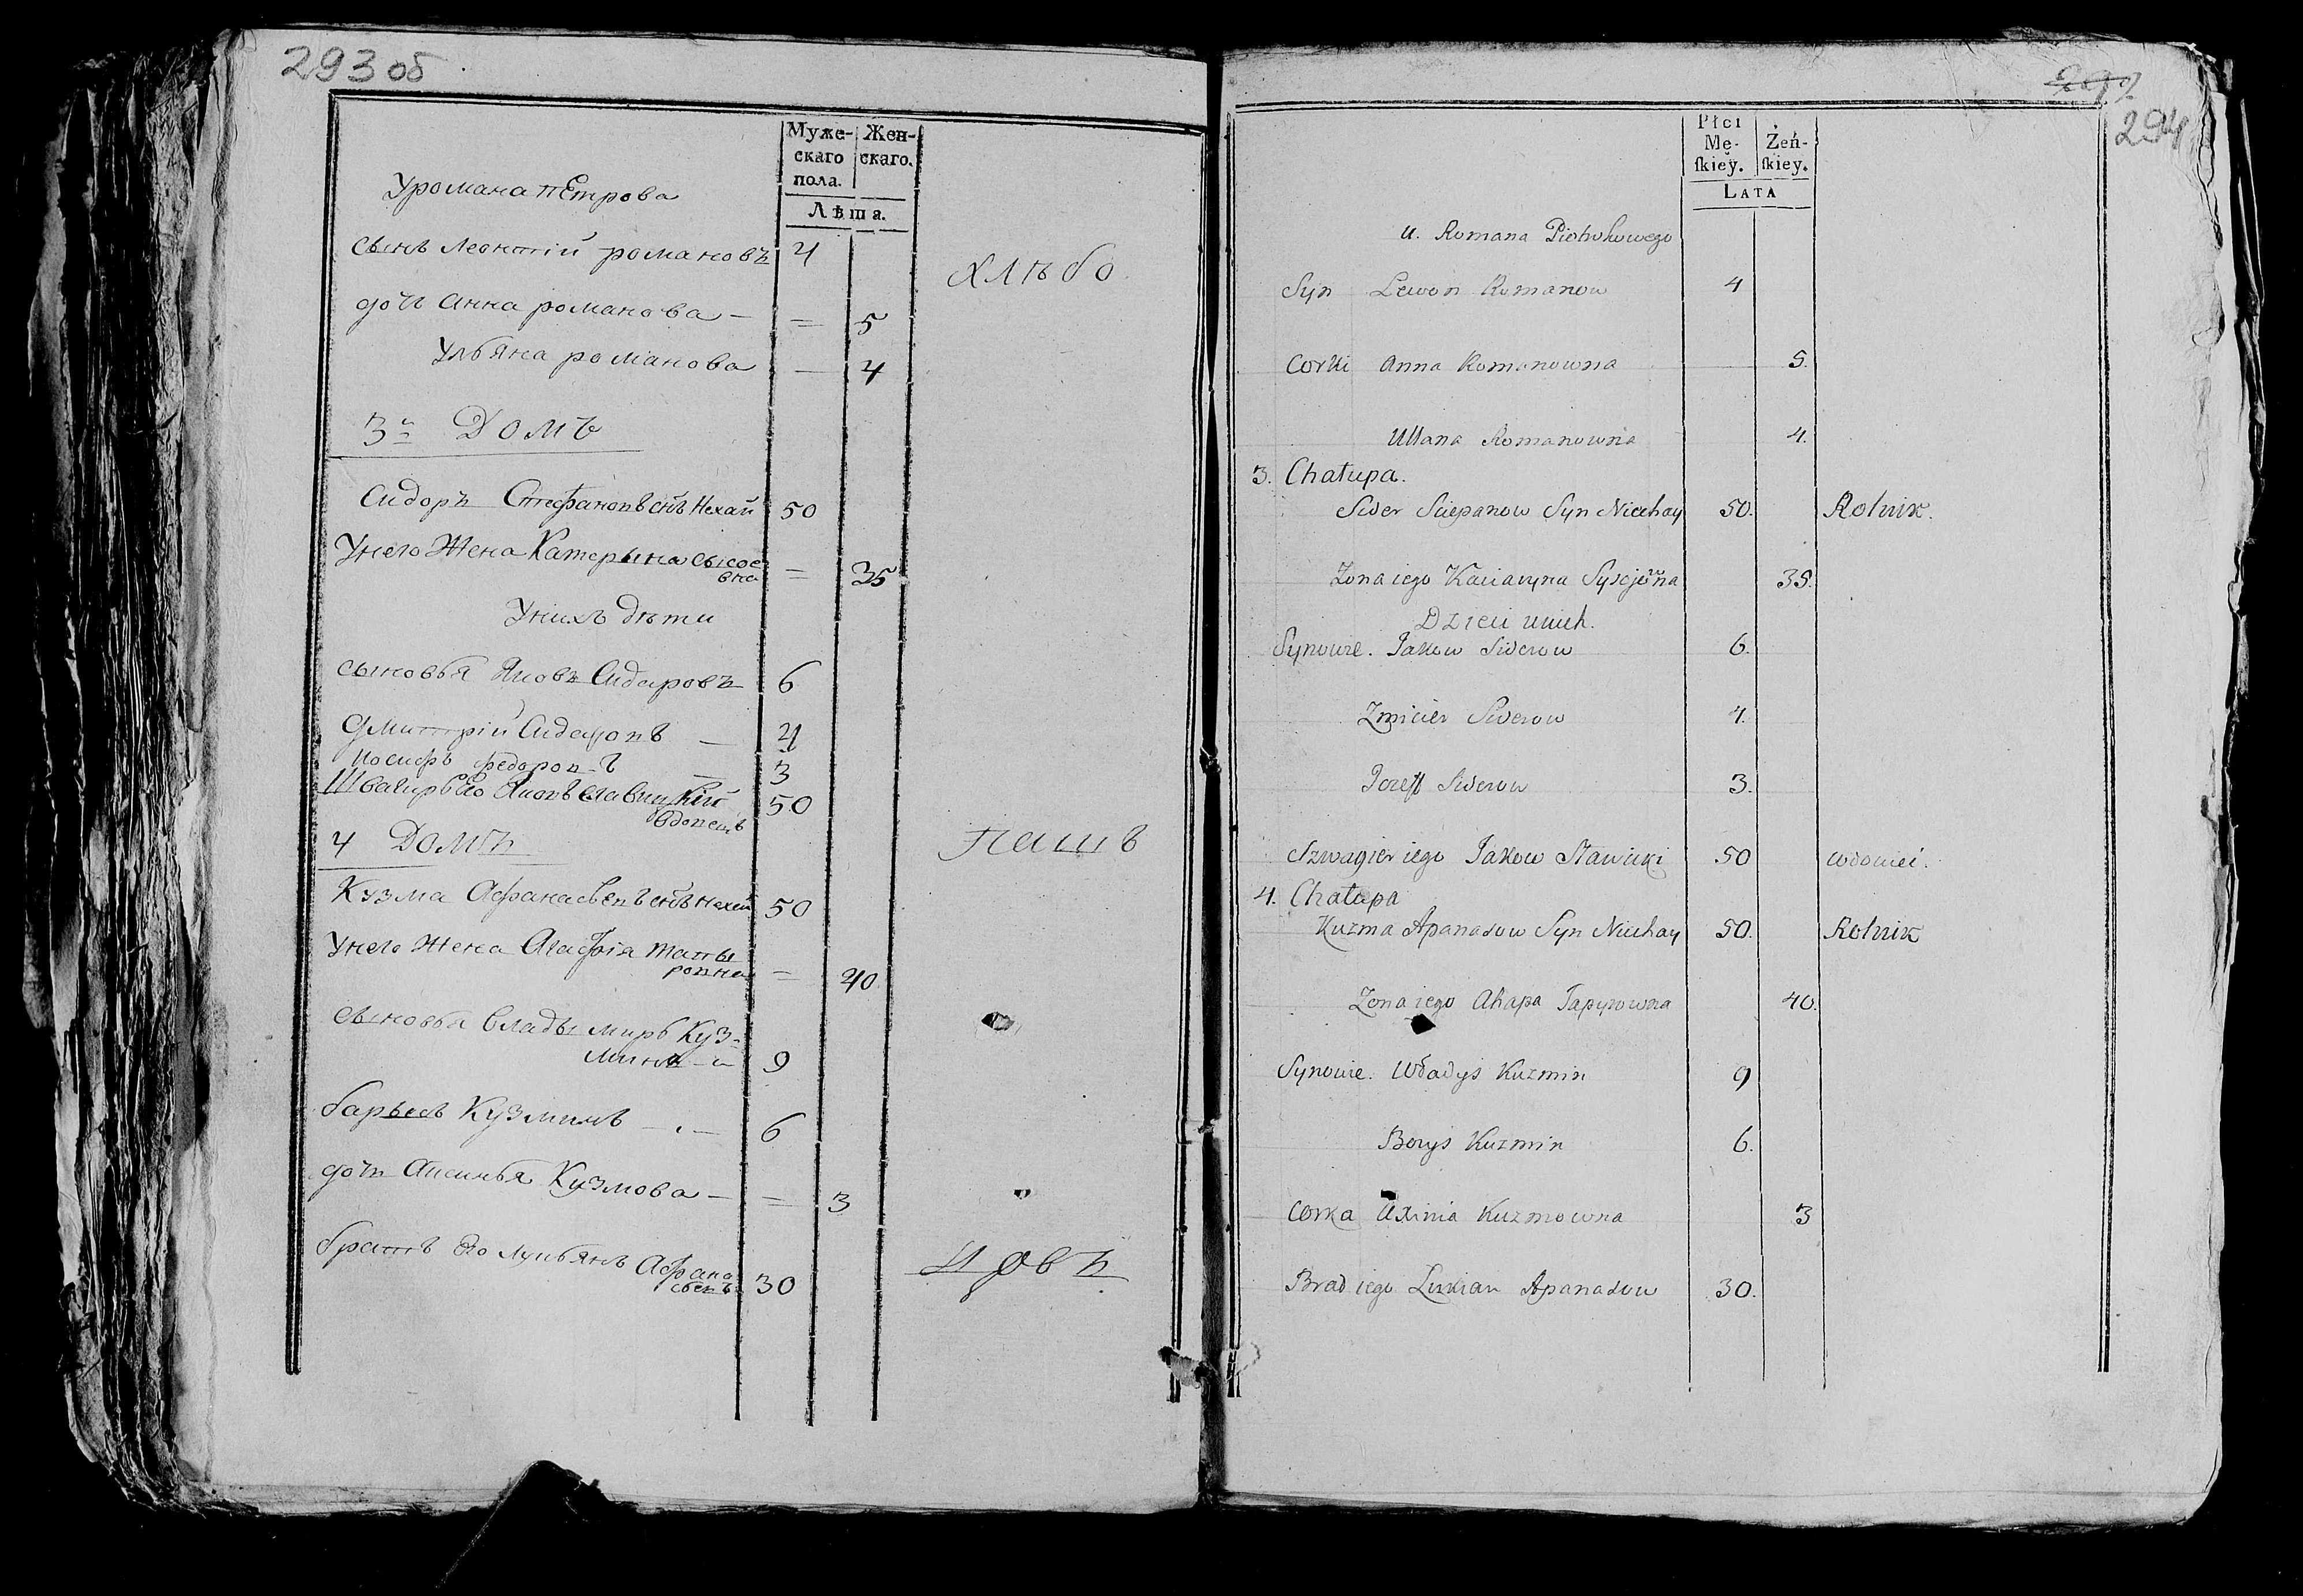 293 об
Муже-
скаго
пола.
Жен-
скаго.
Лѣта.
У романа пЕтрова
сынъ леонтій романовъ 4
хлѣбо
дочи анна романова — = 5
Ульяна романова — 4
3й Домъ
Сидоръ Стефановъ снъ Нехай 50
У него Жена Катерына сысое
вна = 35
У нихъ дѣти
сыновья Яковъ Сидаровъ 6
дмитрій Сидаровъ — 4
Иосифъ федоровъ — 3
Швагиръ его Яковъ славицкій 50
вдовецъ
4 Домъ
пашъ
Кузма Афанасьевъ снъ Нехай 50
У него Жена Агафія тапы
ровна = 40
сыновья владымиръ Куз-
минъ — 9
барысъ Кузминъ — . — 6
дочь Аксинья Кузмова — = 3
братъ его лукьянъ Афана
сьевъ 30
цовъ
297
294
Płci
Mę-
ſkiey.
Żeń-
ſkiey.
Lata
u. Romana Piotrokowego
Syn Lewon Romanow 4
Corki Anna Romanowna 5.
Ullana Romanowna 4.
3. Chałupa.
Sider Sciepanow Syn Niechay 50. Rolnik.
Zona iego Kaciaryna Sysojewna 35.
Dzieci unich.
Synowie. Jakow Siderow 6.
Zmicier Siderow 4.
Jozeff Siderow 3.
Szwagier iego Jakow Sławicki 50 wdowiec.
4. Chałupa
Kuzma Apanasow Syn Niechay 50. Rolnik
Zona iego Ahapa Tapyrowna 40.
Synowie. Władys Kuzmin 9
Borys Kuzmin 6.
Corka Axinia Kuzmowna 3
Brad iego Lukian Apanasow 30.